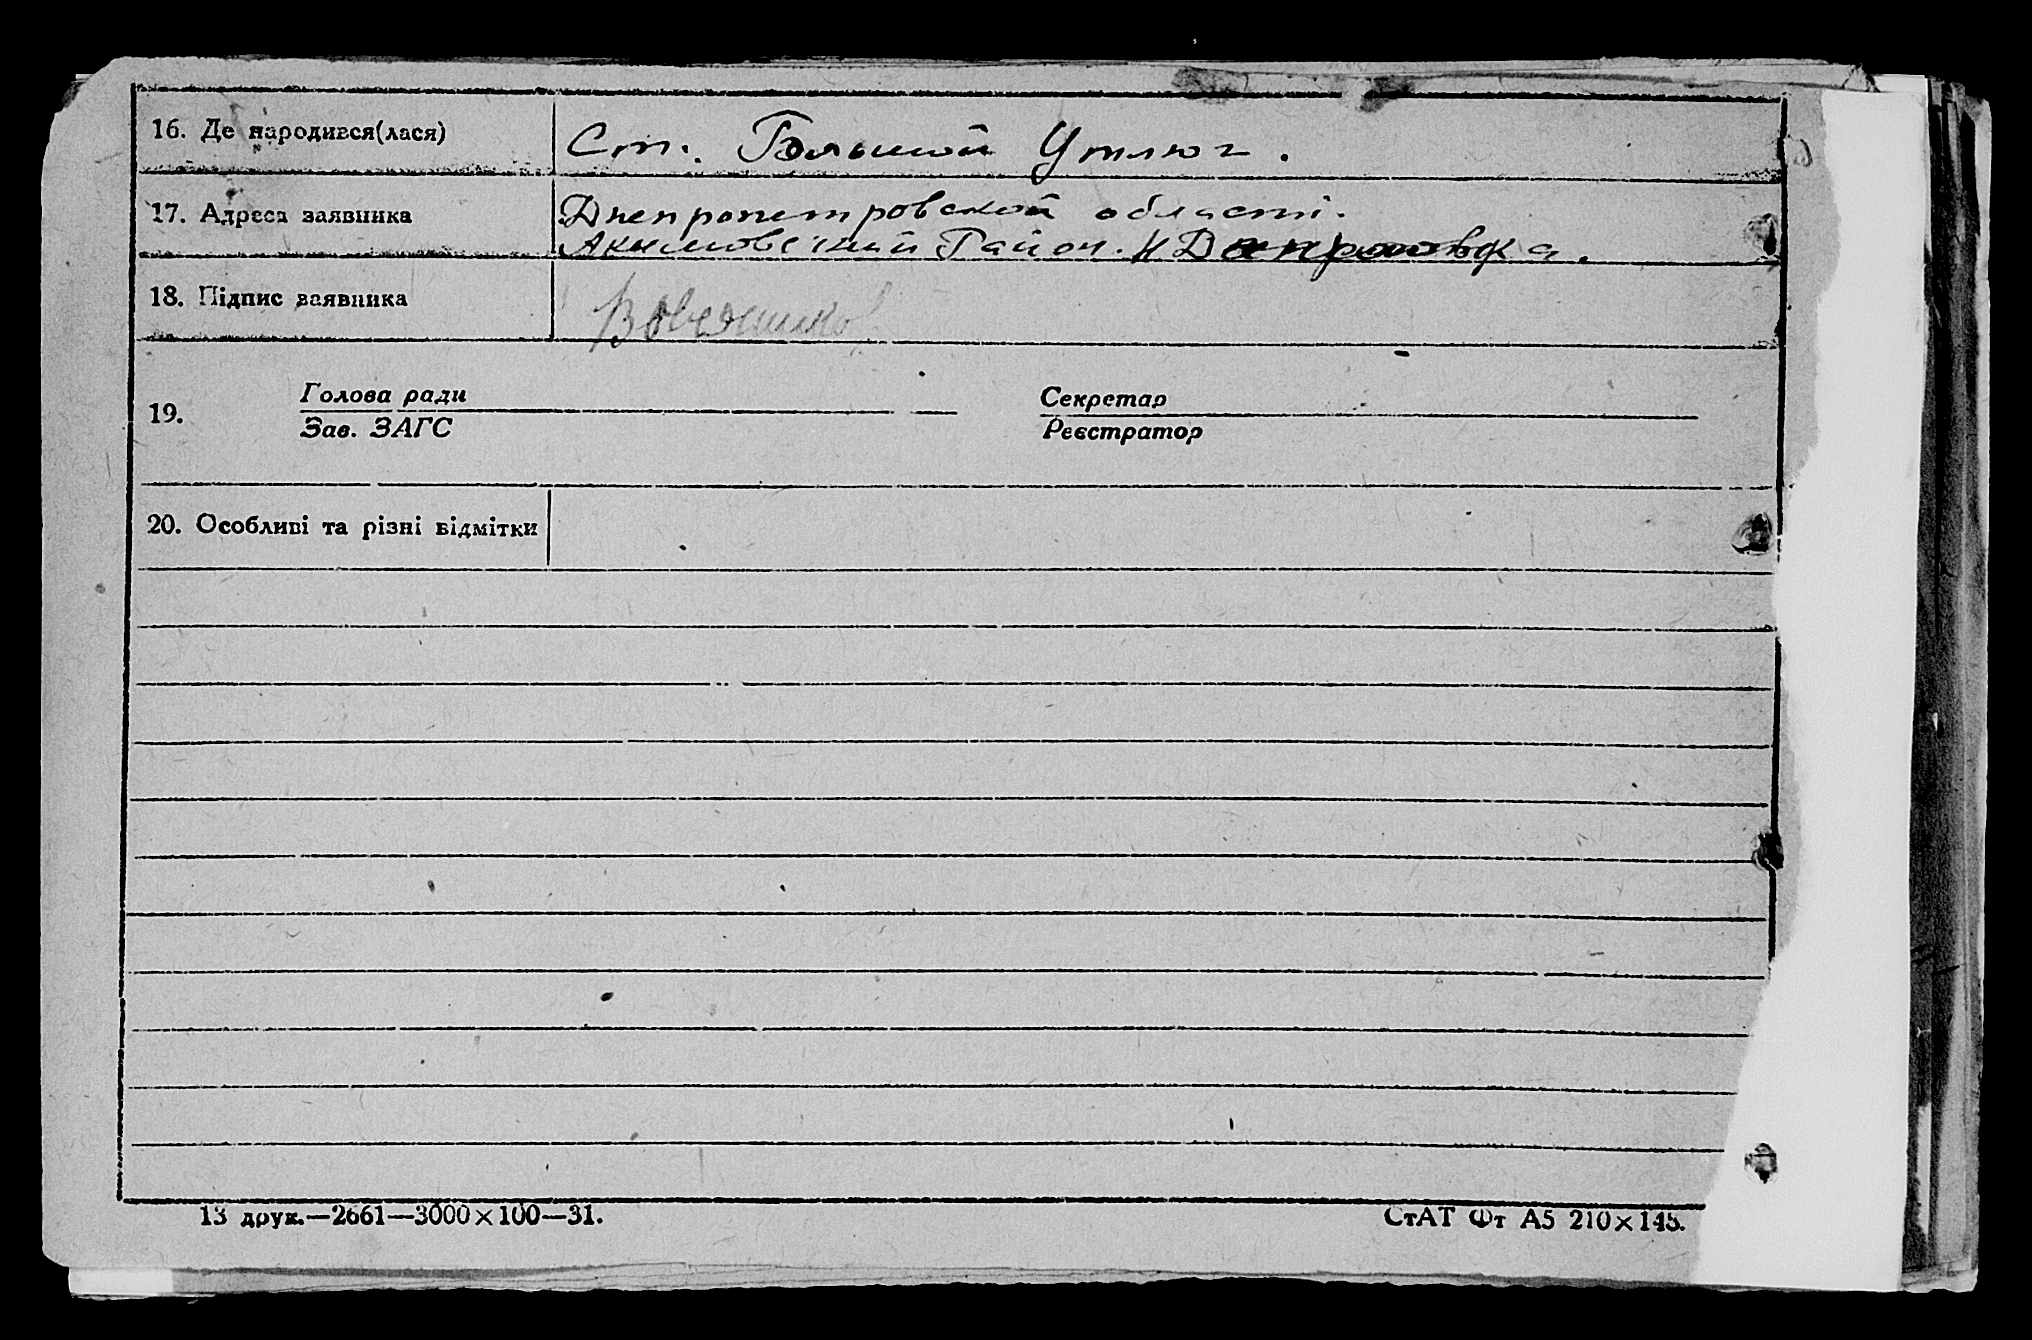 16. Де народився(лася)
Ст. Большой Утлюг.
17. Адреса заявника
Днепропетровской области.
Акимовский Район. Н Данрловка.
18. Підпис заявника
19.
Голова ради
Зав. ЗАГС
Секретар
Реєстратор
20. Особливі та різні відмітки
13 друк.—2661—3000×100—31.
СтАТ Фт А5 210×145.